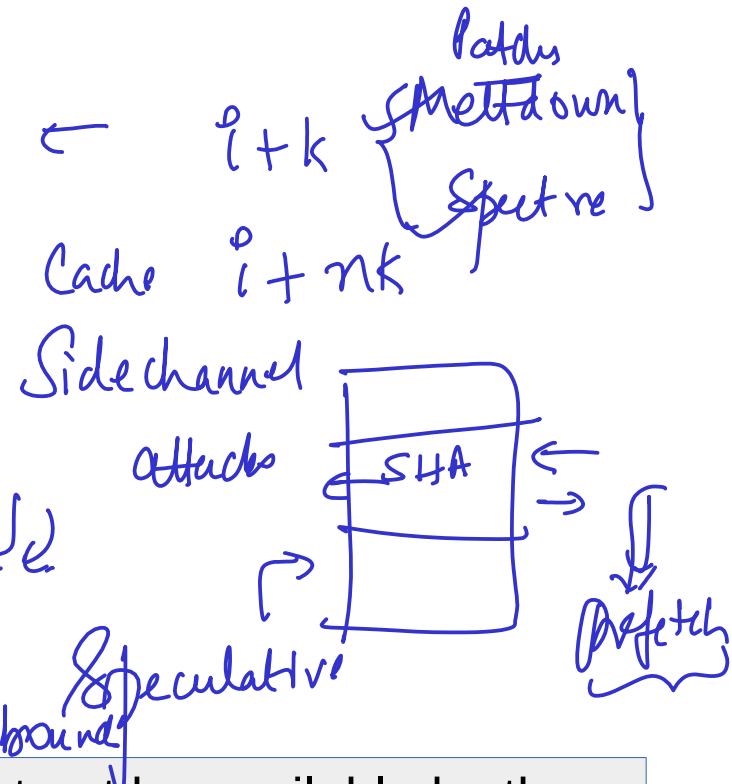 Patches
← i+k Meltdown
Spectre
Cache i+nk
Sidechannel
attacks
SHA
Prefetch
Speculative
bound